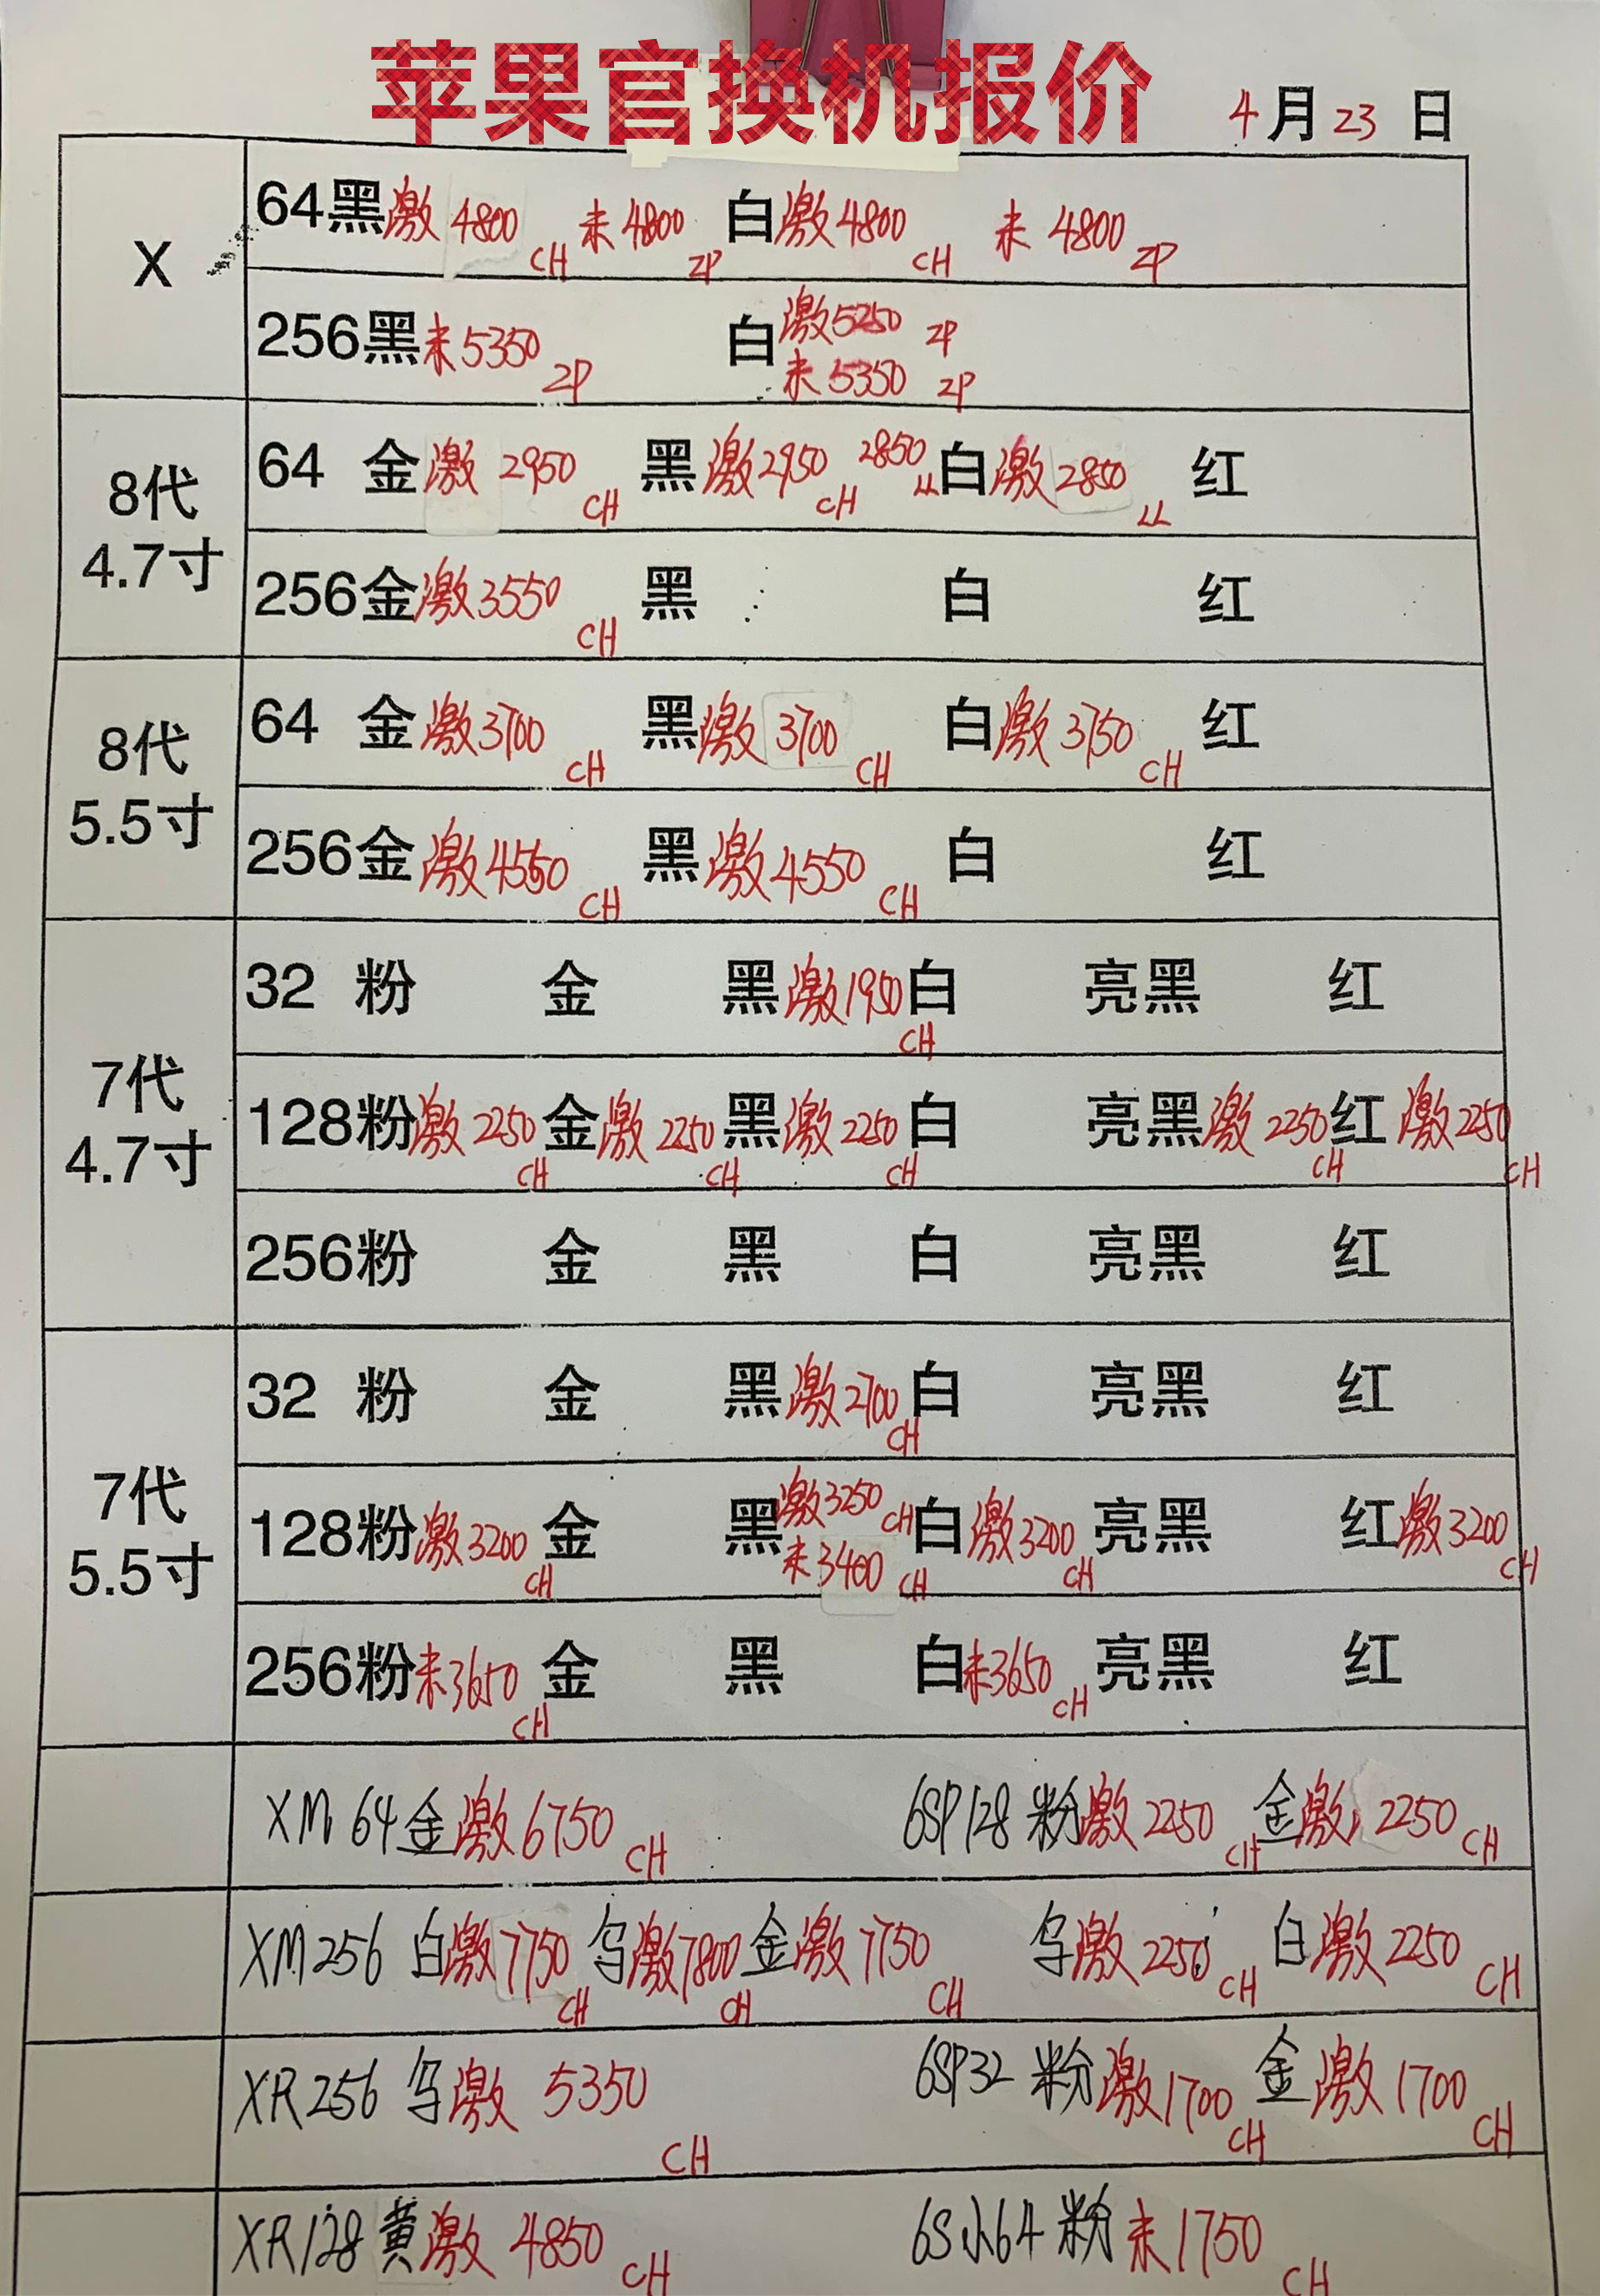 苹果官换机报价
4月23日
X
64黑激4800 CH 未4800 ZP 白激4800 CH 未4800 ZP
256黑未5350 ZP 白激5250 ZP
未5350 ZP
8代
4.7寸
64 金激2950 CH 黑激2950 CH 2850 LL 白激2850 LL 红
256金激3550 CH 黑 白 红
8代
5.5寸
64 金激3700 CH 黑激3700 CH 白激3750 CH 红
256金激4550 CH 黑激4550 CH 白 红
7代
4.7寸
32 粉 金 黑激1950 CH 白 亮黑 红
128粉激2250 CH 金激2250 CH 黑激2250 CH 白 亮黑激2250 CH 红激2250 CH
256粉 金 黑 白 亮黑 红
7代
5.5寸
32 粉 金 黑激2700 CH 白 亮黑 红
128粉激3200 CH 金 黑激3250 CH 白激3200 CH 亮黑 红激3200 CH
未3400 CH
256粉未3650 CH 金 黑 白未3650 CH 亮黑 红
XM 64金激6750 CH 6SP128 粉激2250 CH 金激2250 CH
XM256 白激7750 CH 乌激7800 CH 金激7750 CH 乌激2250 CH 白激2250 CH
XR256 乌激 5350 CH 6SP32 粉激1700 CH 金激1700 CH
XR128 黄激 4850 CH 6S小64 粉未1750 CH